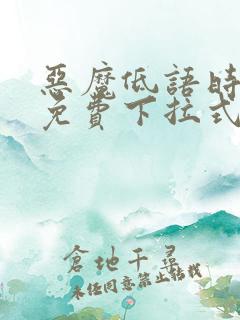 惡魔低語時
免費下拉式
倉地千尋
未經同意禁止轉載